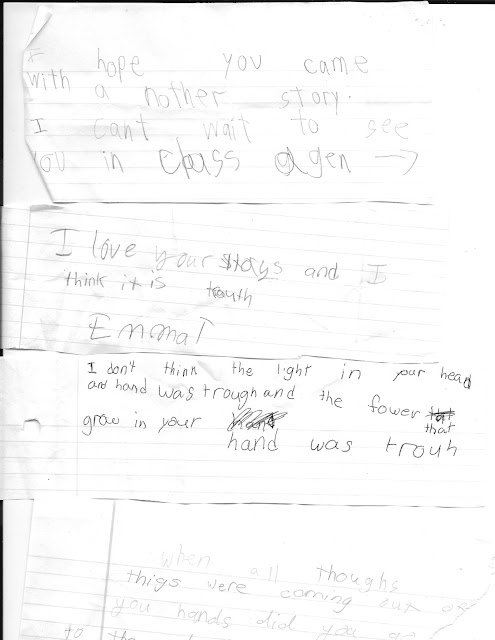 I hope you came
with a nother story.
I cant wait to see
you in class agen →
I love your storys and I
think it is trouth
Emma T
I don't think the light in your head
and hand was trough and the fower that
grow in your hand was trouh
when all thoughs
thigs were coming out of
you hands did you
to the